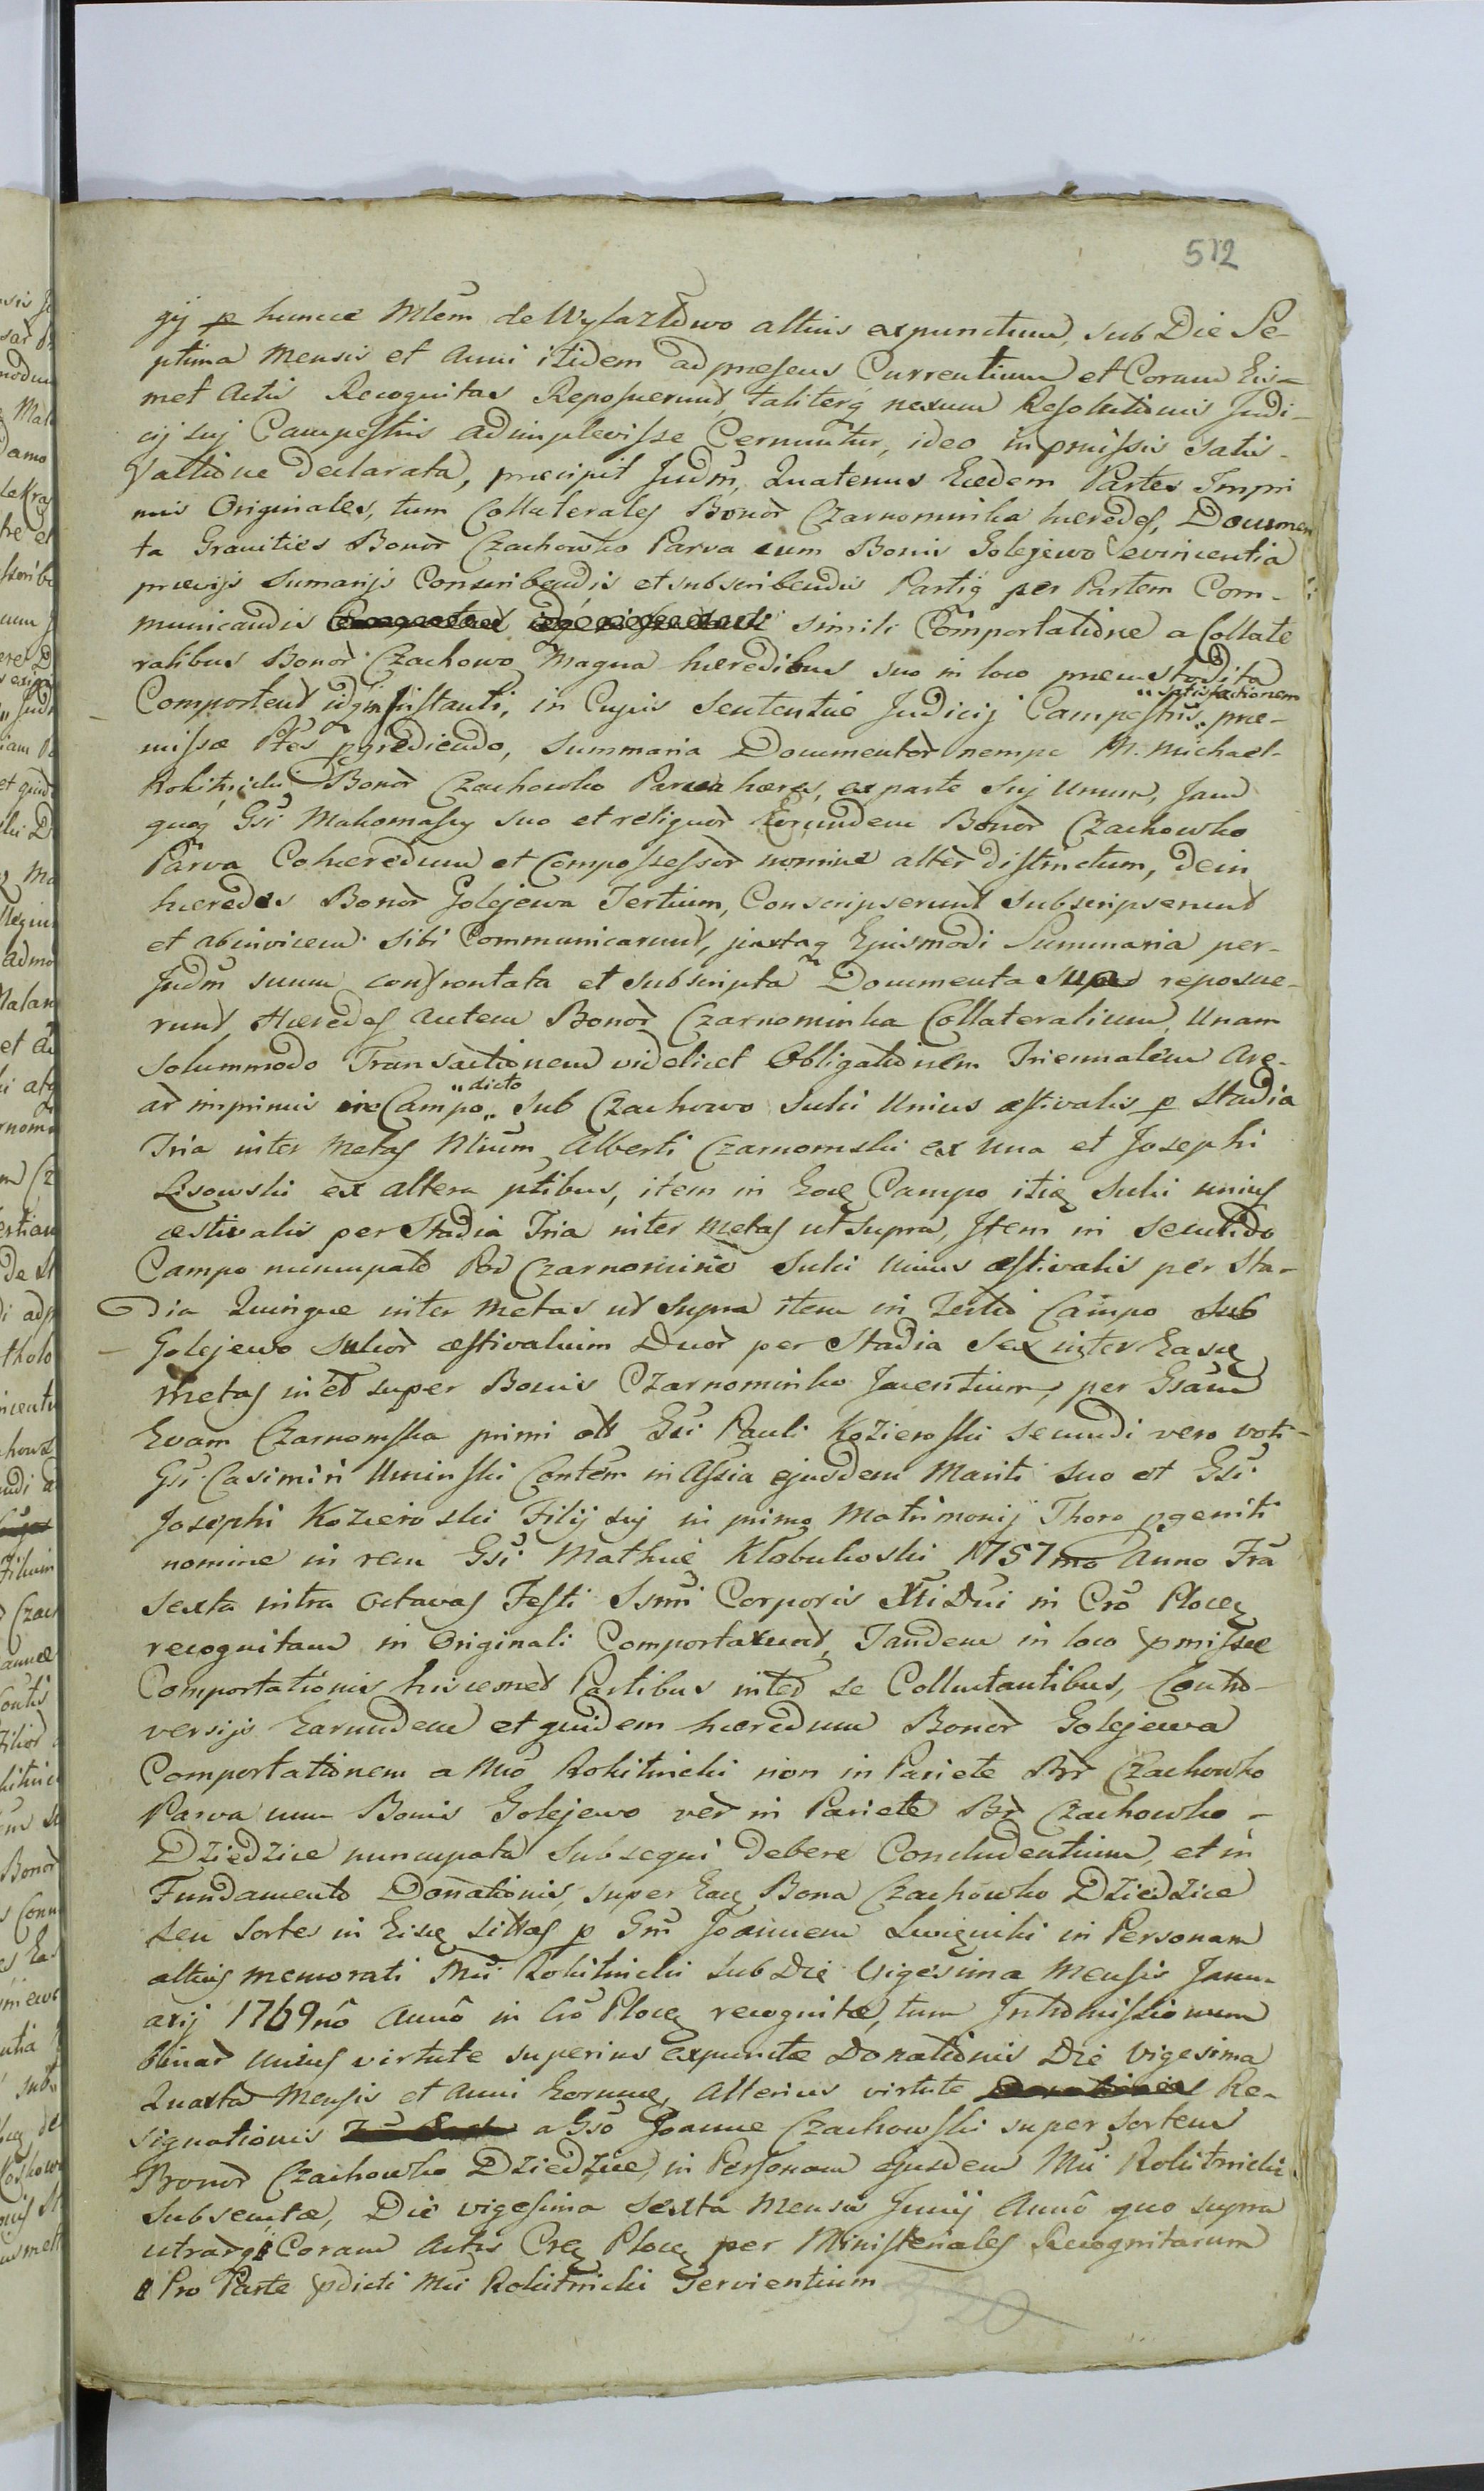 512
gij p hunce Mlem de Wylazłowo altius expunctum, sub Die Se-
ptima Mensis et Anni itidem ad præsens Currentium et Coram Eis-
met Actis Recognitas Reposuerunt, taliterq nexum Resolutionis Judi-
cij sui Campestris adimplevisse Cernuntur, ideo in pmissis satis-
factione declarata, præcipit Judm, Quatenus Eædem Partes Impri
mis Originales, tum Collaterales Bonor Czarnominka hæredes, Documen
ta Granities Bonor Czachowko Parva cum Bonis Golejewo evincentia
prævijs Sumarijs Conscribendis et subscribendis Partiq per Partem Com-
municandis simili Comportatione a Collate
ralibus Bonor Czachowo Magna hæredibus suo in loco præcustodita
Comportent idq in instanti, in Cujus Sententiæ Judicij Campestris „satisfactionem„ præ-
missæ Ptes pgrediendo, Summaria Documentor nempe M. Michael
Rokitnicki Bonor Czachowko Parva hæres, ex parte sui Unum, Jam
quoq Gsi Makomasky suo et reliquor Eorundem Bonor Czachowko
Parva Cohæredum et Compossessor nomine alter distinctum, dein
hæredes Bonor Golejewa Tertium, Conscripserunt Subscripserunt
et abinvicem sibi Communicarunt, juxtaq Ejusmodi Summaria per
Judm suum confrontata et subscripta Documenta sua reposue-
runt, Hæredes autem Bonor Czarnominka Collateralium Unam
solummodo Transactionem videlicet Obligationem Triennalem Agr-
or imprimis in Campo „dicto„ Sub Czachowo Sulci Unius æstivalis p Stadia
Tria inter Metas Nlium Alberti Czarnomski ex una et Josephi
Lisowski ex altera ptibus, item in Eoq Campo itiq Sulci unius
æstivalis per Stadia Tria inter Metas ut supra, Item in secundo
Campo nuncupato Pod Czarnominie Sulci Unius æstivalis per Sta-
dia Quinque inter Metas ut Supra item in Tertio Campo Sub
Golejewo Sulcor æstivalium Duor per Stadia Sex inter Easq
Metas in et super Bonis Czarnominko Jacentium, per Gsam
Evam Czarnomska primi olt Gsi Pauli Kozieroski secundi vero voti
Gsi Casimiri Uminski Contem in Assia ejusdem Mariti suo et Gsi
Josephi Kozieroski Filij sui in primo Matrimonij Thoro pgeniti
nomine in rem Gsi Mathiæ Kłobukoski 1757mo Anno Fra
sexta intra Octavas Festi Ssmi Corporis Xti Dni in Cro Plocq
recognitam in Originali Comportarunt, Tandem in loco pmissæ
Comportationis hiscemet Partibus inter se Colluctantibus, Contro-
versijs Earundem et quidem hæredum Bonor Golejewa
Comportationem a Mco Rokitnicki non in Pariete Bor Czachowko
Parva cum Bonis Golejewo ver in Pariete Bor Czachowko
Dziedzice nuncupata Subsequi debere Concludentium, et in
Fundamento Donationis, super Eaq Bona Czachowko Dziedzice
seu Sortes in Eisq sittas p Gsm Joannem in Personam
altius memorati Mci Rokitnicki Sub Die Vigesima Mensis Janu-
arij 1769no Anno in Cro Plocq recognitæ, tum Intromissionum
binar Unius virtute superius expunctæ Donationis Die Vigesima
Quarta Mensis et Anni Eorumq, Alterius virtute Re-
signationis a Gso Joanne Czachowski super Sortem
Bonor Czachowko Dziedzice, in Personam Ejusdem Mci Rokitnicki
Subsecutæ, Die vigesima Sexta Mensis Junij Anno quo supra
utrarq Coram Actis Creq Plocq per Ministeriales Recognitarum
Pro Parte pdicti Mci Rokitnicki Servientium